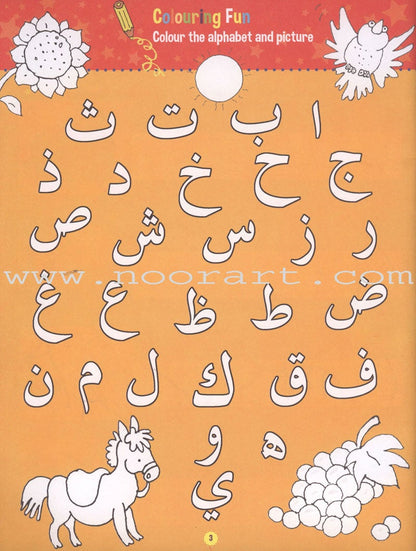 Colouring Fun
Colour the alphabet and picture
ا ب ت ث
ج ح خ د ذ
ر ز س ش ص
www.noorart.com
ض ط ظ ع غ
ف ق ك ل م ن
ه و
ي
3